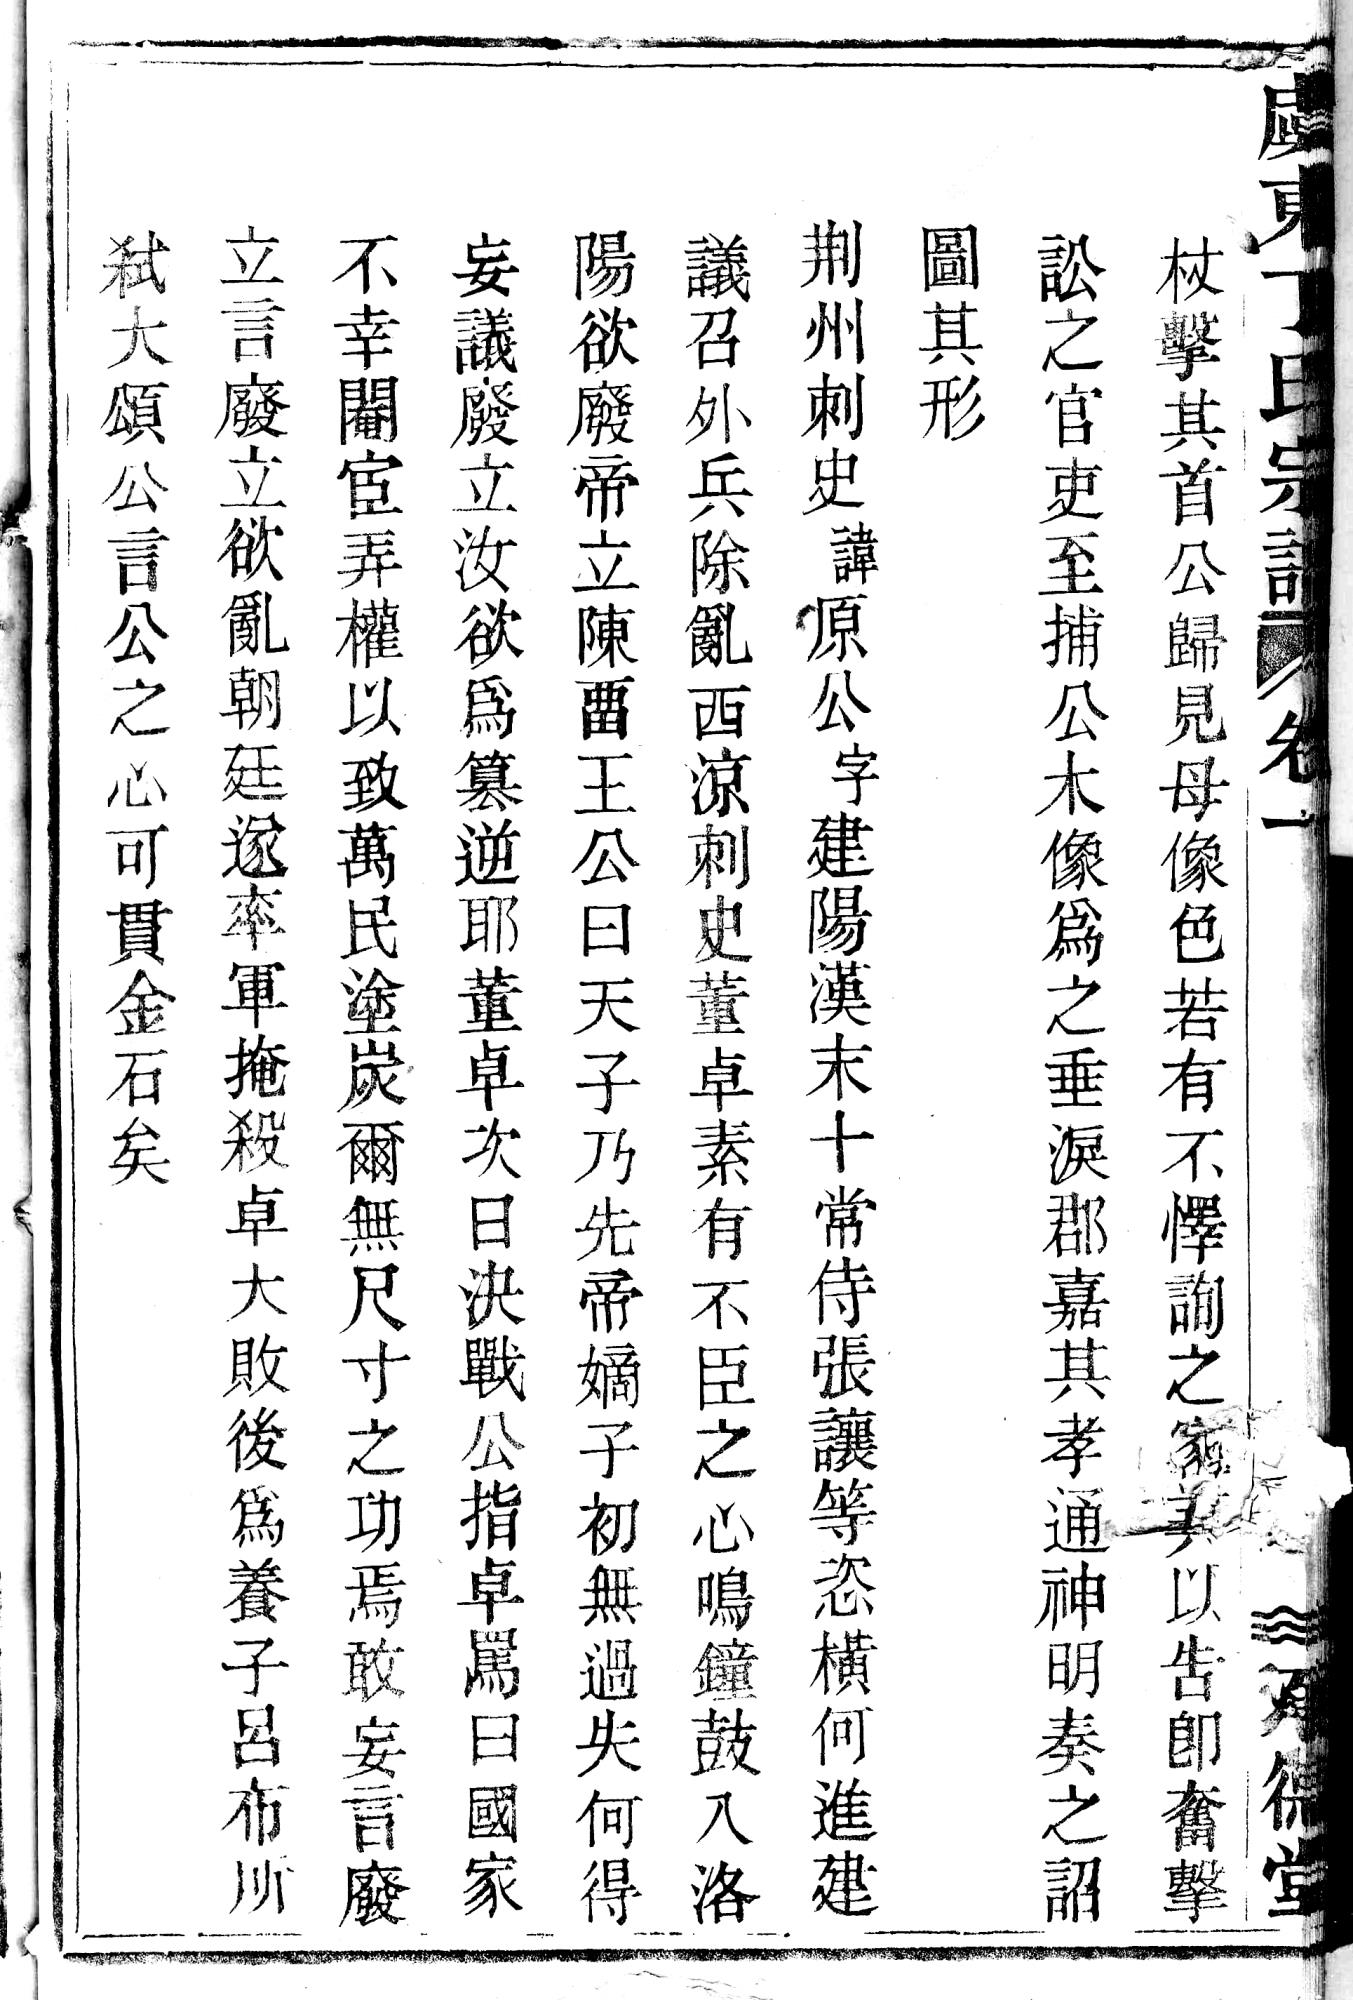 虞東丁氏宗譜 卷一 承德堂
杖擊其首公歸見母像色若有不懌詢之家具以告卽奮擊
訟之官吏至捕公木像爲之垂淚郡嘉其孝通神明奏之詔
圖其形
荆州刺史諱原公字建陽漢末十常侍張讓等恣橫何進建
議召外兵除亂西涼刺史董卓素有不臣之心鳴鐘鼓入洛
陽欲廢帝立陳畱王公曰天子乃先帝嫡子初無過失何得
妄議廢立汝欲爲篡逆耶董卓次日決戰公指卓罵曰國家
不幸閹宦弄權以致萬民塗炭爾無尺寸之功焉敢妄言廢
立言廢立欲亂朝廷遂率軍掩殺卓大敗後爲養子呂布所
弑大頌公言公之心可貫金石矣